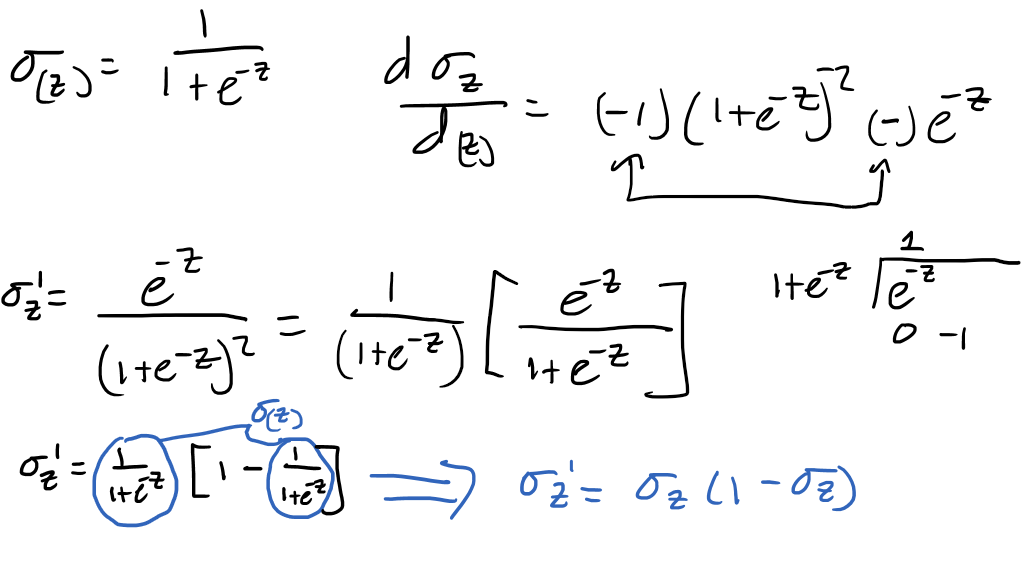 σ(z) = 1/(1+e^-z)    dσ_z/d(z) = (-1)(1+e^-z)^-2 (-)e^-z
σ_z' = e^-z/(1+e^-z)^2 = 1/(1+e^-z) [e^-z/(1+e^-z)]    1+e^-z ⟌ e^-z    1    0 -1
σ(z)
σ_z' = 1/(1+e^-z) [1 - 1/(1+e^-z)] ⇒ σ_z' = σ_z (1 - σ_z)